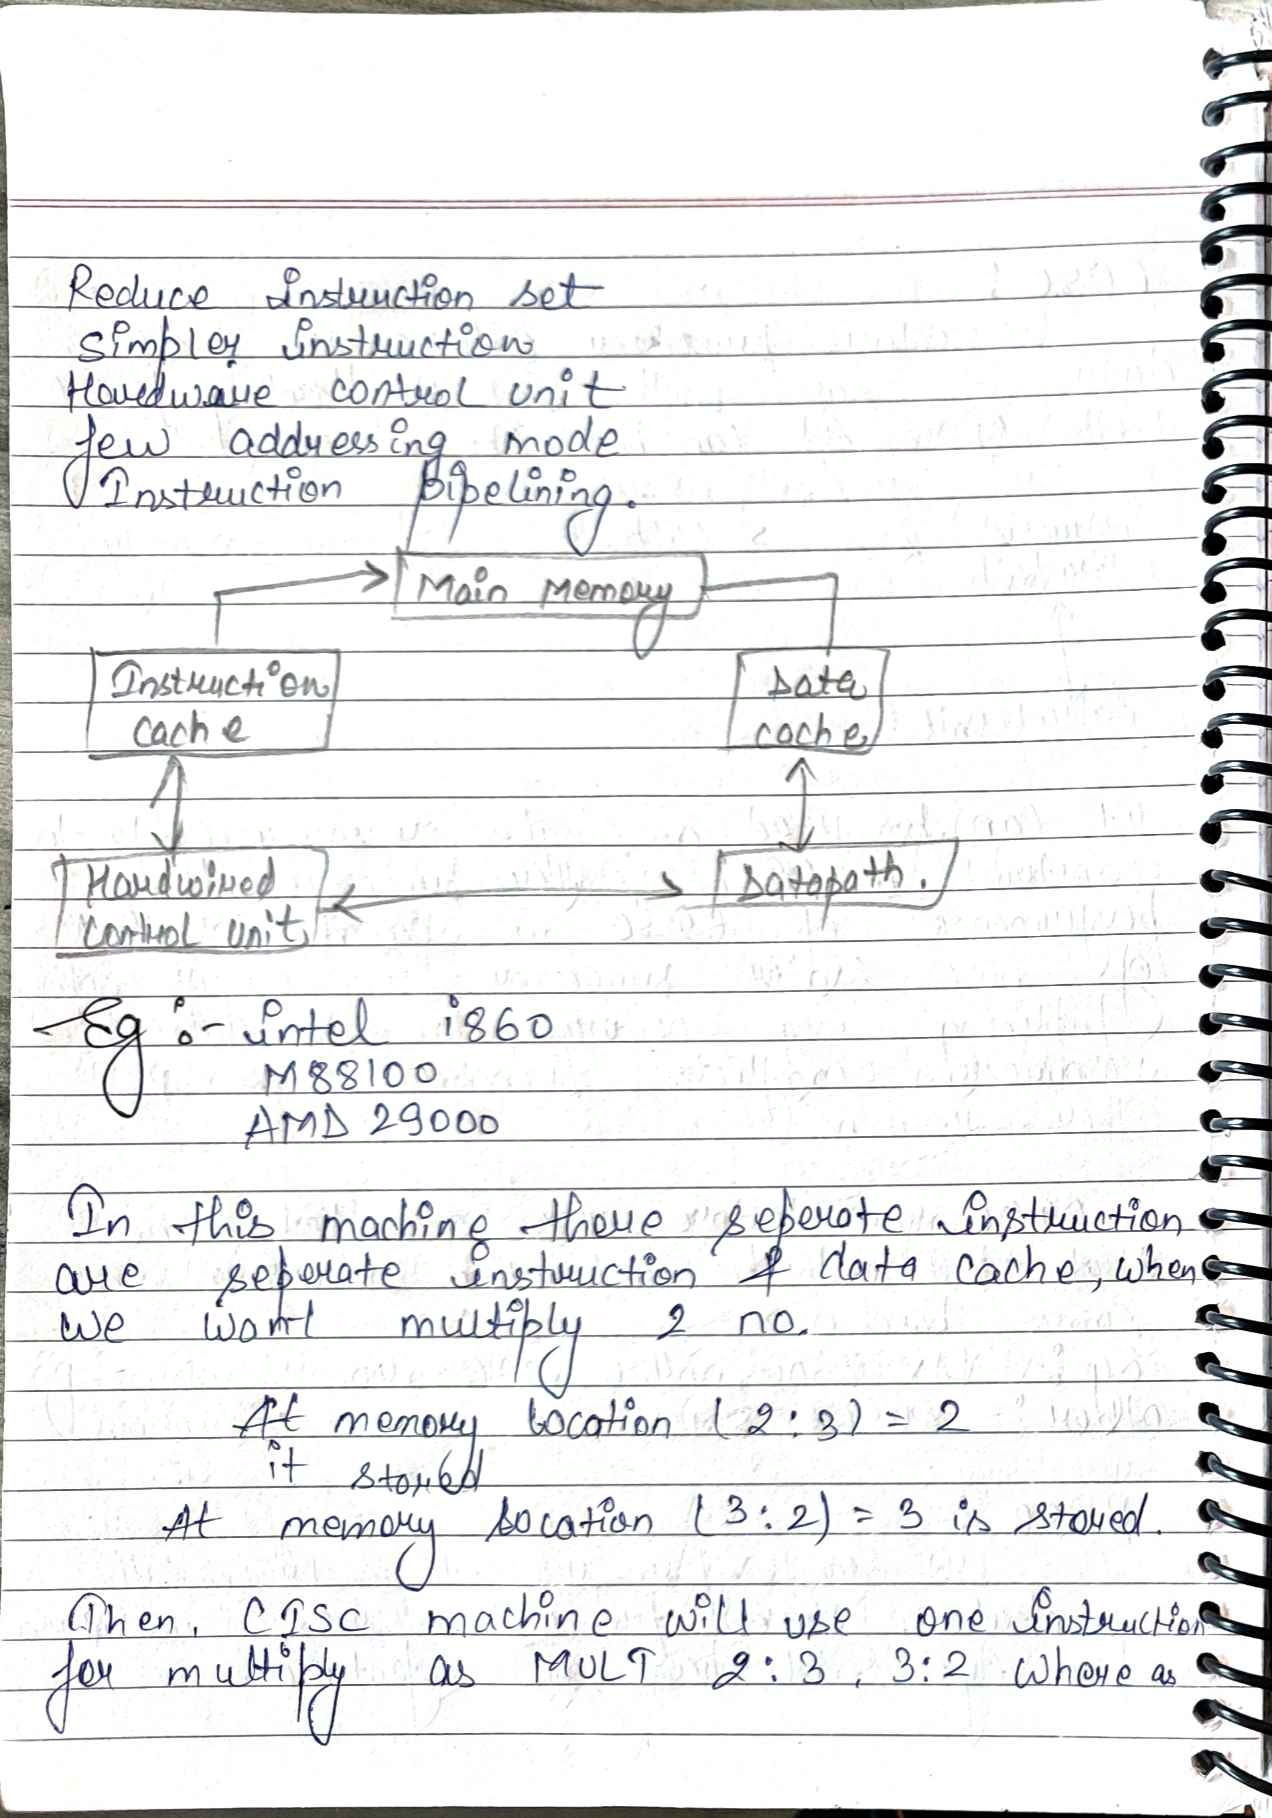 Reduce instruction set
Simpler instruction
Hardware control unit
few addressing mode
Instruction pipelining.
Main Memory
Instruction
cache
Data
cache
Hardwired
control unit
Datapath.
Eg :- intel i860
M88100
AMD 29000
In this machine there seperate instruction
are seperate instruction & data cache, when
we want multiply 2 no.
At memory location (2:3) = 2
it stored
At memory location (3:2) = 3 is stored.
Then, CISC machine will use one instruction
for multiply as MULT 2:3, 3:2 where as